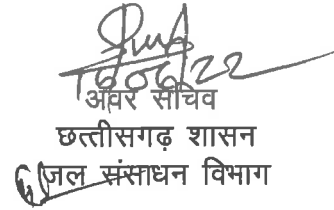 16/06/22
अवर सचिव
छत्तीसगढ़ शासन
जल संसाधन विभाग